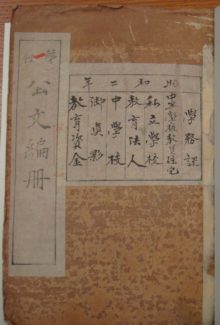 學務課
昭和二年
私立學校
教育法人
中學校
御眞影
教育資金
公文編册